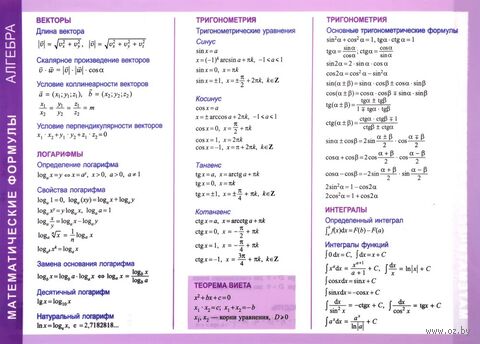 МАТЕМАТИЧЕСКИЕ ФОРМУЛЫ
АЛГЕБРА
ВЕКТОРЫ
Длина вектора
|v̄| = √(vₓ² + vᵧ²), |v̄| = √(vₓ² + vᵧ² + v_z²)
Скалярное произведение векторов
v̄ · w̄ = |v̄| · |w̄| · cosα
Условие коллинеарности векторов
ā = (x₁;y₁;z₁), b̄ = (x₂;y₂;z₂)
x₁/x₂ = y₁/y₂ = z₁/z₂ = m
Условие перпендикулярности векторов
x₁·x₂+y₁·y₂+z₁·z₂=0
ЛОГАРИФМЫ
Определение логарифма
logₐx=y ⇔ x=aʸ, x>0, a>0, a≠1
Свойства логарифма
logₐ1=0, logₐ(xy)=logₐx+logₐy
logₐxʸ=y logₐx, logₐa=1
logₐ x/y =logₐx−logₐy
Замена основания логарифма
Десятичный логарифм
lgx=log₁₀x
Натуральный логарифм
lnx=logₑx, e = 2,7182818...
ТРИГОНОМЕТРИЯ
Тригонометрические уравнения
Синус
sinx=a
x=(−1)ᵏarcsina+πk, −1≤a≤1
sinx=0, x=πk
sinx=±1, x=±π/2+2πk, k∈Z
Косинус
cosx=a
x=±arccosa+2πk, −1≤a≤1
cosx=0, x=π/2+πk
cosx=1, x=2πk
cosx=−1, x=±π+2πk, k∈Z
Тангенс
tgx=a, x=arctga+πk
tgx=0, x=πk
tgx=±1, x=±π/4+πk, k∈Z
Котангенс
ctgx=a, x=arcctga+πk
ТЕОРЕМА ВИЕТА
x²+bx+c=0
x₁·x₂=c; x₁+x₂=−b
x₁, x₂ — корни уравнения, D>0
ТРИГОНОМЕТРИЯ
Основные тригонометрические формулы
sin²α+cos²α=1, tgα·ctgα=1
tgα=sinα/cosα; ctgα=cosα/sinα
sin2α=2·sinα·cosα
cos2α=cos²α−sin²α
sin(α±β)=sinα·cosβ±cosα·sinβ
cos(α±β)=cosα·cosβ∓sinα·sinβ
tg(α±β)=(tgα±tgβ)/(1∓tgα·tgβ)
ctg(α±β)=(ctgα·ctgβ∓1)/(ctgβ±ctgα)
sinα±sinβ=2·sin (α±β)/2 ·cos (α∓β)/2
cosα+cosβ=2·cos (α+β)/2 ·cos (α−β)/2
cosα−cosβ=−2·sin (α+β)/2 ·sin (α−β)/2
2sin²α=1−cos2α
2cos²α=1+cos2α
ИНТЕГРАЛЫ
Определенный интеграл
∫ₐᵇf(x)dx=F(b)−F(a)
Интегралы функций
∫0dx=C, ∫dx=x+C
∫xᵃdx=xᵃ⁺¹/(a+1)+C, ∫dx/x=ln|x|+C
∫cosxdx=sinx+C
∫sinxdx=−cosx+C
∫dx/sin²x=−ctgx+C, ∫dx/cos²x=tgx+C
∫aˣdx=aˣ/ln|a|+C
www.oz.by